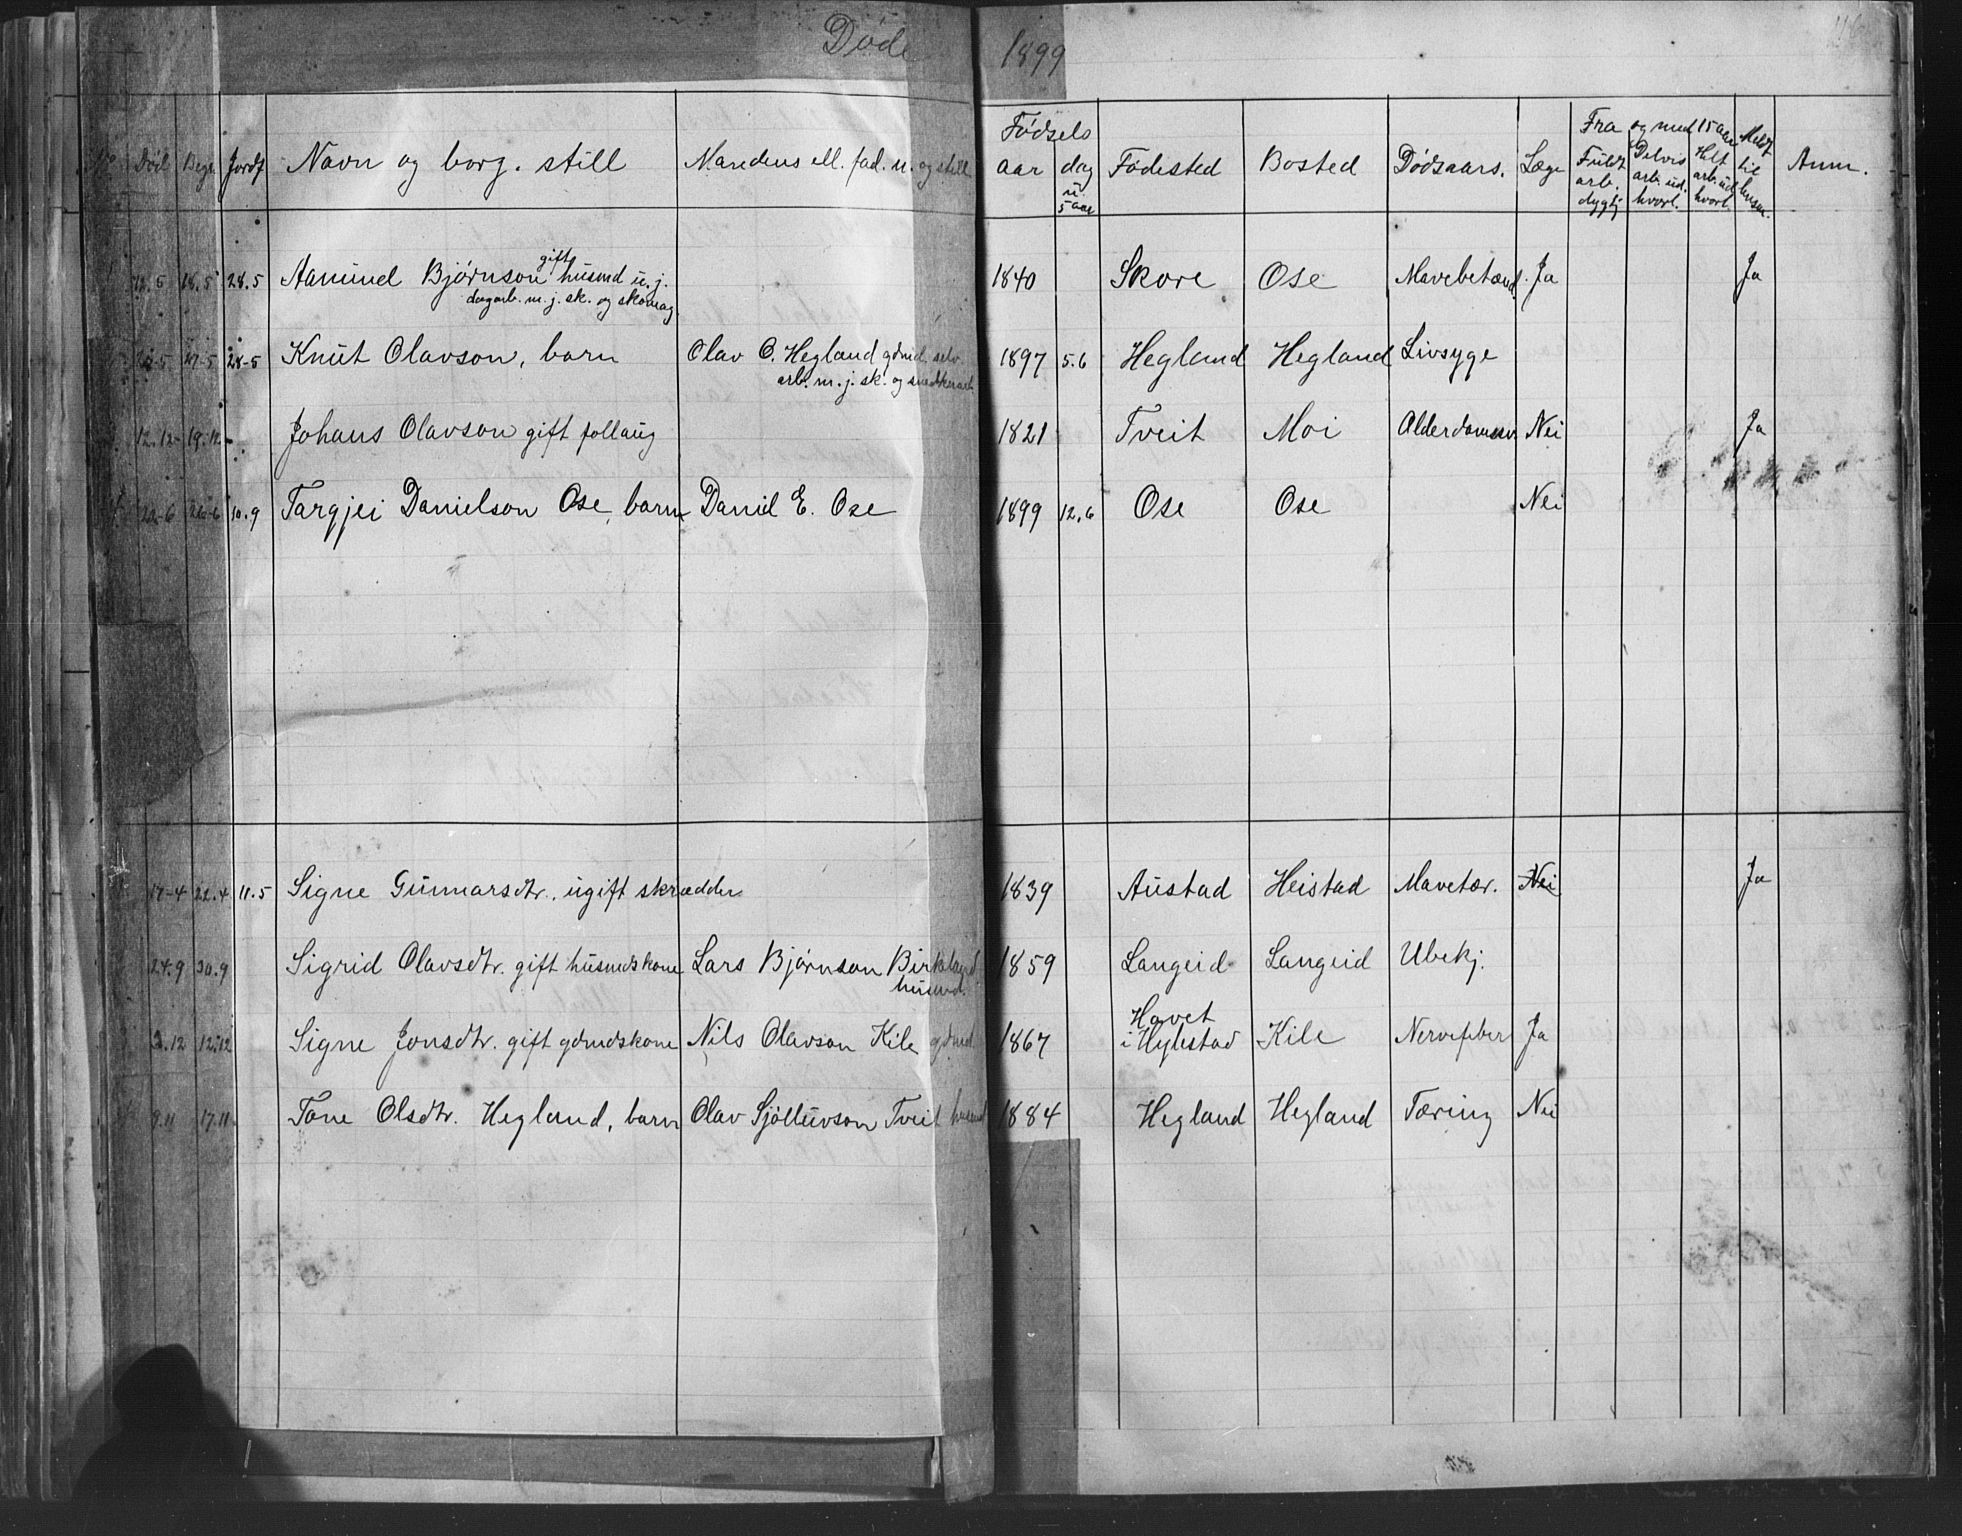 Døde 1899
No Død Begr. Jordf Navn og borg. still Mandens ell. fad. n. og still Fødsels aar dag u. 5 aar Fødested Bosted Dødsaars. Læge Fra og med 15 aar Fuldt arb. dygtig Delvis arb. ud. hvorl. Helt arb. ud hvorl. Meldt til Anm.
12.5 18.5 28.5 Aamund Bjørnson gift husmd u. j. 1840 Skore Ose Mavebetænd. Ja Ja
dagarb. m. j. sk. og skomag.
27-5 28-5 Knut Olavson, barn Olav O. Hegland gdmd. selv. 1897 5.6 Hegland Hegland Livsyge
arb. m. j. sk. og snedkerarb.
12.12- 19.12- Johans Olavson gift follaug 1821 Tveit Moi Alderdomssv Nei Ja
22-6 26-6 10.9 Targjei Danielson Ose, barn Daniel E. Ose 1899 12.6 Ose Ose Nei
17-4 22.4 11.5 Signe Gunnarsdtr. ugift skrædder 1839 Austad Heistad Mavetær. Nei Ja
24.9 30.9 Sigrid Olavsdtr. gift husmdskone Lars Bjørnson Birkeland 1859 Langeid Langeid Ubekj.
husmd.
Hovet
3.12 12.12 Signe Jonsdtr. gift gdmdskone Nils Olavson Kile gdmd. 1867 i Hylestad Kile Nervefeber Ja
9.11 17.11 Tone Olsdtr. Hegland, barn Olav Sjøltuvson Tveit husmd 1884 Hegland Hegland Tæring Nei